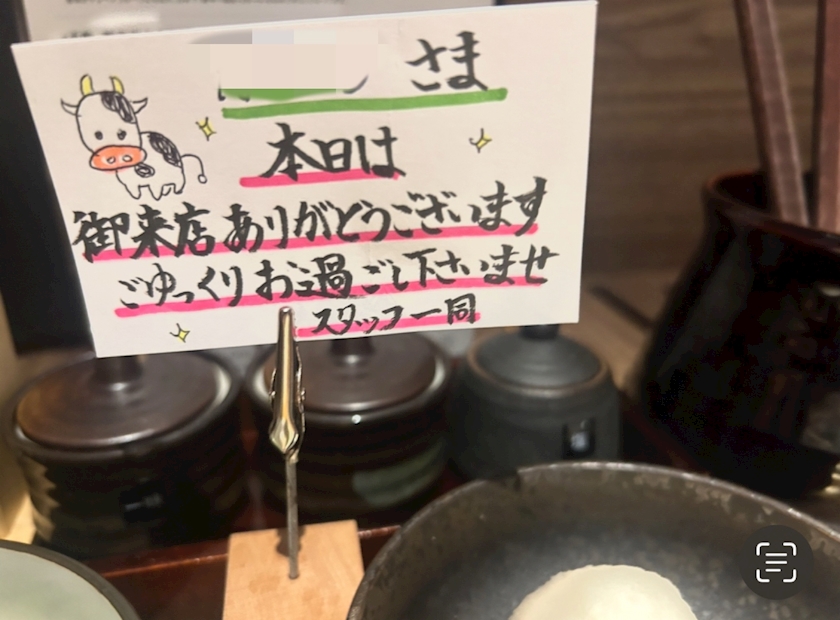 さま
本日は
御来店ありがとうございます
ごゆっくりお過ごし下さいませ
スタッフ一同